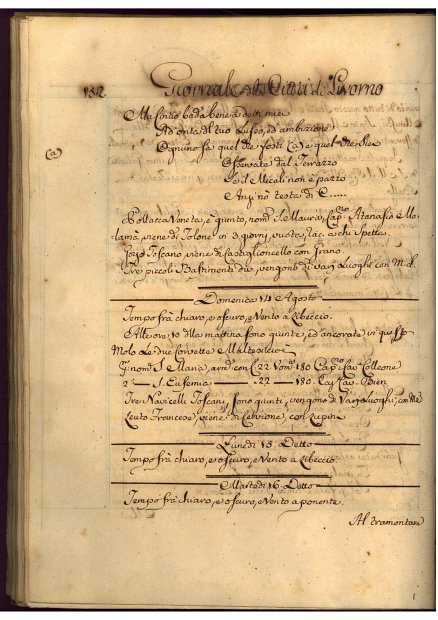 132 Giornale della Città di Livorno
Ma sortio bada bene a detti miei
Ad onta di tuo Lusso, ed ambizione
(a) Ognuno sa quel che fosti (a) e quel che sei
O pensate dal Terrazzo
Se il Micali non è pazzo
Anzi nò testa di C.....
Polacca Veneta, e giunto, nom. S. e Mauro, Cap.no Atanasio e Ma
lamà, viene di Tolone in 3 giorni, vuota, Rac. a chi spetta.
Gozzo Toscano, viene di Castiglioncello con Grano
Tre piccoli Bastimenti due, vengono di varj Luoghi con M.
Domenica 14 Agosto
Tempo frà chiaro, e oscuro, e Vento a Libeccio.
Alle ore 10 della mattina sono giunte, ed ancorate in questo
Molo Le due Corvette Maltesi cioè
G. nom. S. Maria, arm. con C. 22 Uom. 180 Cap.no Colleone
2.a S. Eufemia - 22 - 180. Cap. Bien.
Tre Navicelli Toscani, sono giunti, vengono di Varj Luoghi, con Me
Leuto Francese, viene di con Rupine
Lunedì 15. Detto
Tempo frà chiaro, e oscuro, e Vento a Libeccio
Martedì 16. Detto
Tempo frà chiaro, e oscuro, e Vento a ponente.
Al tramontare